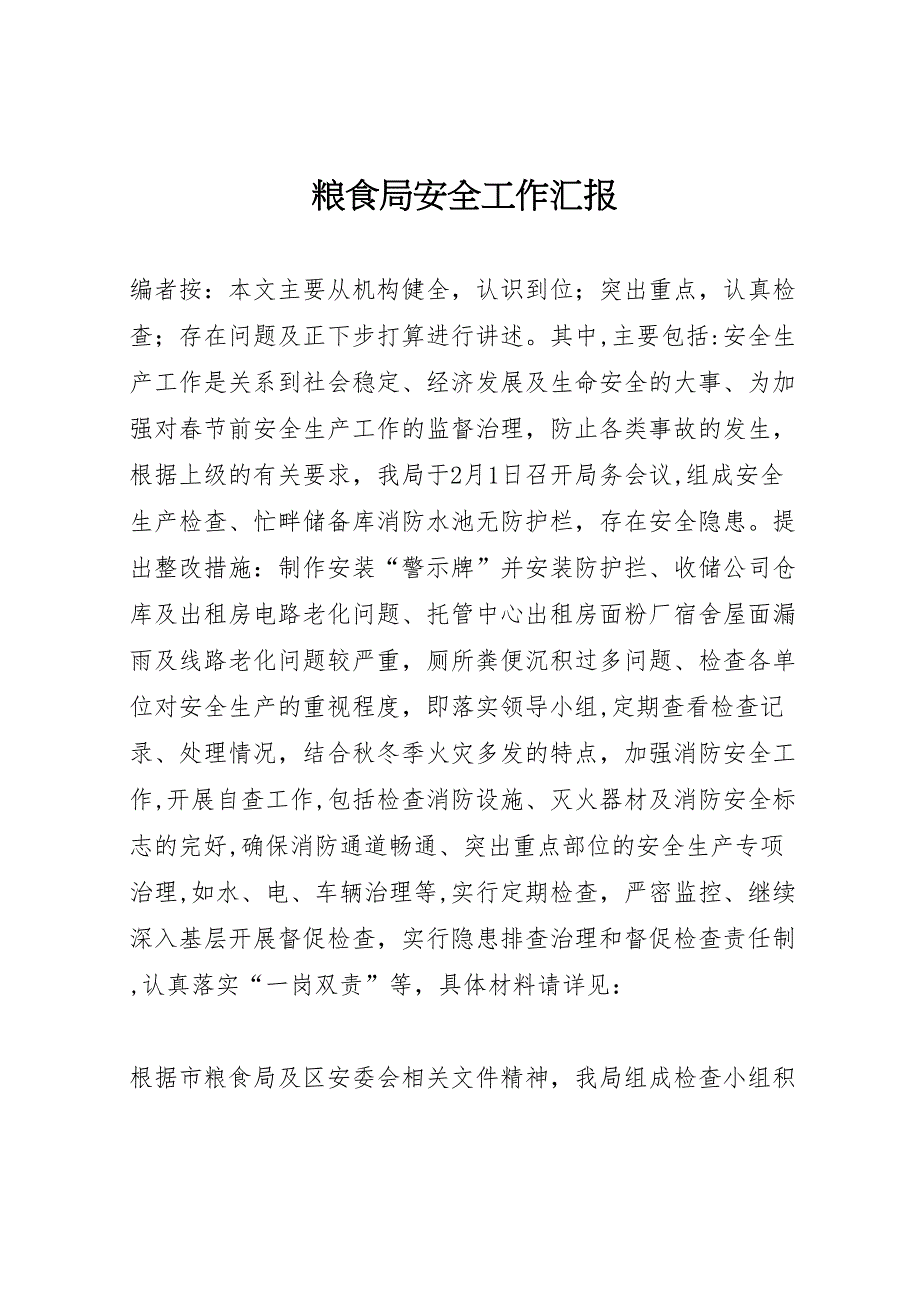 粮食局安全工作汇报
编者按：本文主要从机构健全，认识到位；突出重点，认真检
查；存在问题及正下步打算进行讲述。其中,主要包括:安全生
产工作是关系到社会稳定、经济发展及生命安全的大事、为加
强对春节前安全生产工作的监督治理，防止各类事故的发生，
根据上级的有关要求，我局于2月1日召开局务会议,组成安全
生产检查、忙畔储备库消防水池无防护栏，存在安全隐患。提
出整改措施：制作安装“警示牌”并安装防护拦、收储公司仓
库及出租房电路老化问题、托管中心出租房面粉厂宿舍屋面漏
雨及线路老化问题较严重，厕所粪便沉积过多问题、检查各单
位对安全生产的重视程度，即落实领导小组,定期查看检查记
录、处理情况，结合秋冬季火灾多发的特点，加强消防安全工
作,开展自查工作,包括检查消防设施、灭火器材及消防安全标
志的完好,确保消防通道畅通、突出重点部位的安全生产专项
治理,如水、电、车辆治理等,实行定期检查，严密监控、继续
深入基层开展督促检查，实行隐患排查治理和督促检查责任制
,认真落实“一岗双责”等，具体材料请详见：
根据市粮食局及区安委会相关文件精神，我局组成检查小组积